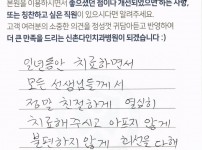 본원을 이용하시면서 좋으셨던 점이나 개선되었으면 하는 사항,
또는 칭찬하고 싶은 직원이 있으시다면 말려주세요.
고객 여러분의 소중한 의견을 정성껏 귀담아듣고 반영하여
더 큰 만족을 드리는 신촌다인치과병원이 되겠습니다 :)
일년동안 치료하면서
모든 선생님들께서
정말 친절하게 열심히
치료해주시고 아프지 않게
불편하지 않게 최선을 다해